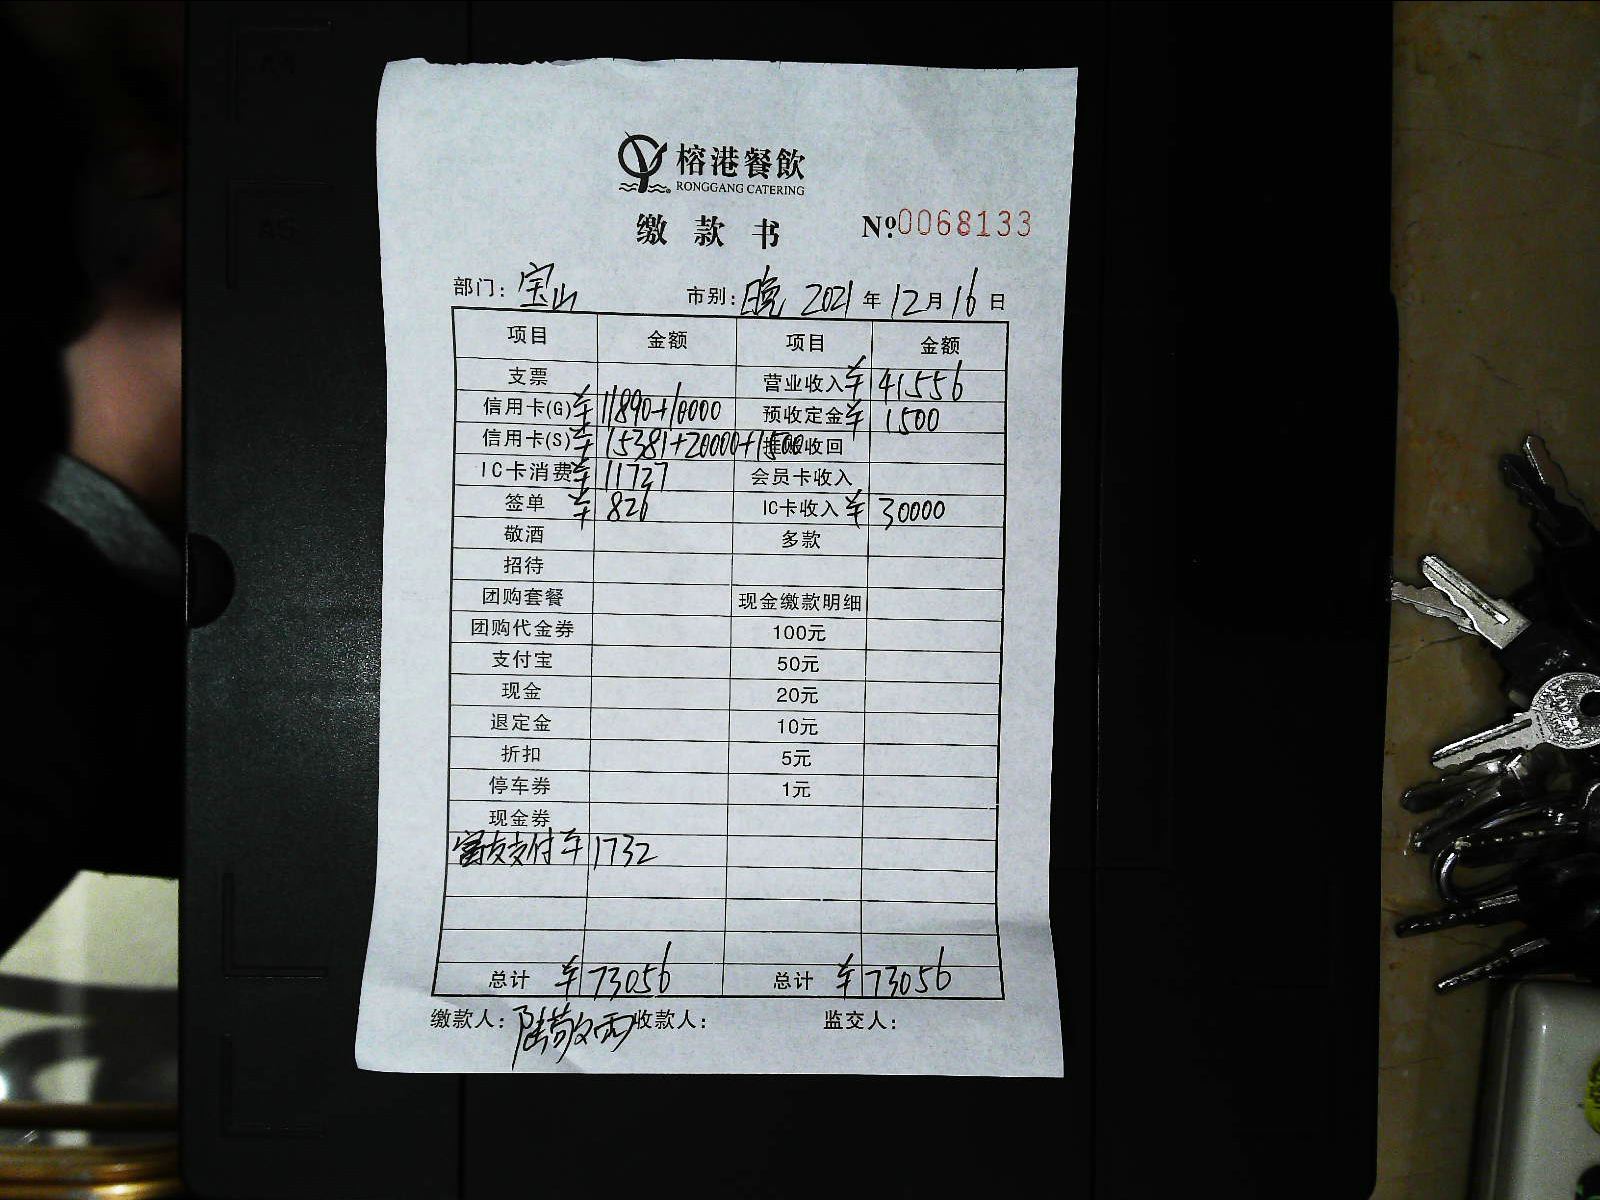 榕港餐飲
RONGGANG CATERING
缴款书 Nº0068133
部门: 宝山 市别: 晚 2021年12月16日
项目 金额 项目 金额
支票 营业收入 ¥41556
信用卡(G) ¥11890+10000 预收定金 ¥1500
信用卡(S) ¥15381+20000+1500 挂账收回
IC卡消费 ¥11727 会员卡收入
签单 ¥826 IC卡收入 ¥30000
敬酒 多款
招待
团购套餐 现金缴款明细
团购代金券 100元
支付宝 50元
现金 20元
退定金 10元
折扣 5元
停车券 1元
现金券
富友支付 ¥1732
总计 ¥73056 总计 ¥73056
缴款人: 陆敬雨 收款人: 监交人: